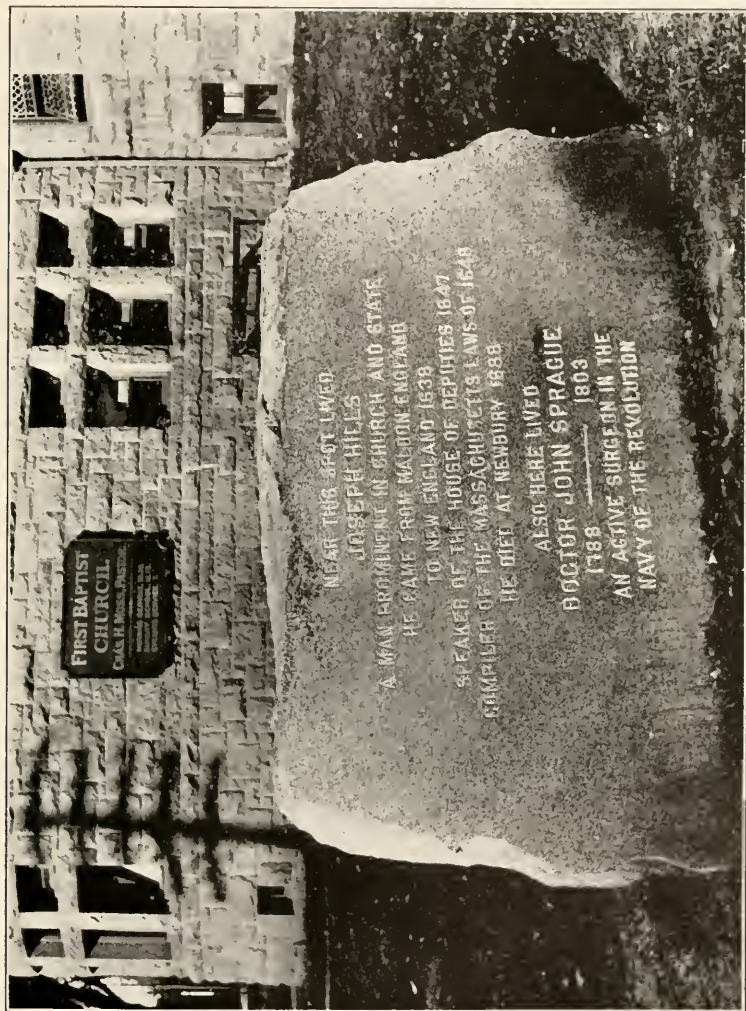 FIRST BAPTIST
CHURCH
CHAS. H. MOSS, PASTOR
NEAR THIS SPOT LIVED
JOSEPH HILLS
A MAN PROMINENT IN CHURCH AND STATE
HE CAME FROM MALDON ENGLAND
TO NEW ENGLAND 1638
SPEAKER OF THE HOUSE OF DEPUTIES 1647
COMPILER OF THE MASSACHUSETTS LAWS OF 1648
HE DIED AT NEWBURY 1688
ALSO HERE LIVED
DOCTOR JOHN SPRAGUE
1803
AN ACTIVE SURGEON IN THE
NAVY OF THE REVOLUTION